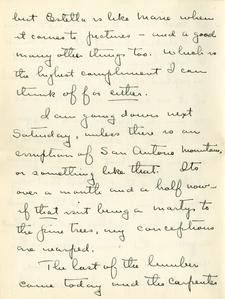 but Estella is like Marie when
it comes to pictures - and a good
many other things too. Which is
the highest compliment I can
think of for either.
I am going down next
Saturday, unless there is an
eruption of San Antonio mountain,
or something like that. Its
over a month and a half now -
if that isn't being a martyr to
the pine trees, my conceptions
are warped.
The last of the lumber
came today and the carpenter